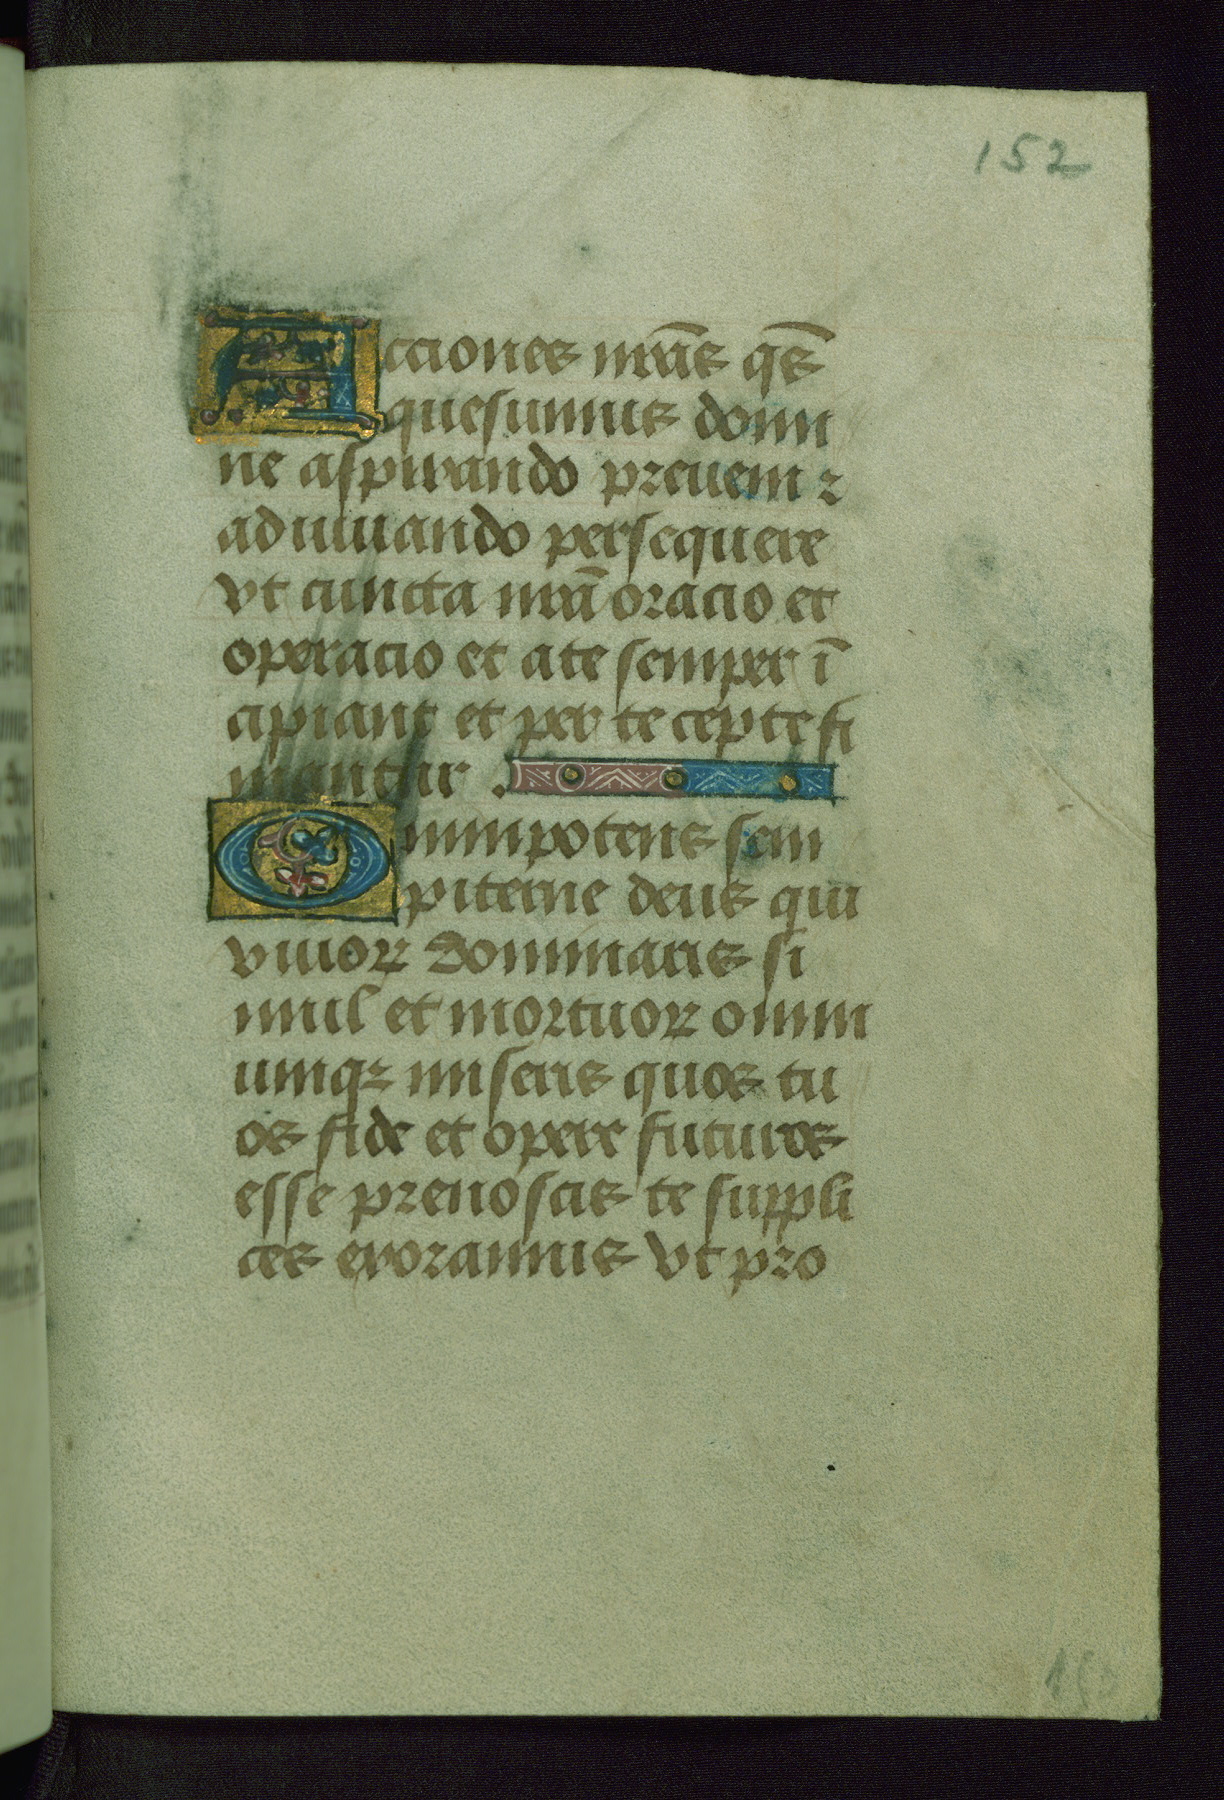 152
Acciones nr̄as qs̄
quesumus domi
ne aspirando preueni ⁊
adiuuando persequere
vt cuncta nr̄a oracio et
operacio et a te semper ī
cipiant et per te cepte fi
niantur .
Omnipotens sem
piterne deus qui
viuoꝝ dominaris si
mul et mortuoꝝ omni
umqꝫ miseris quos tu
os fide et opere futuros
esse prenoscis te suppli
ces exoramus vt pro